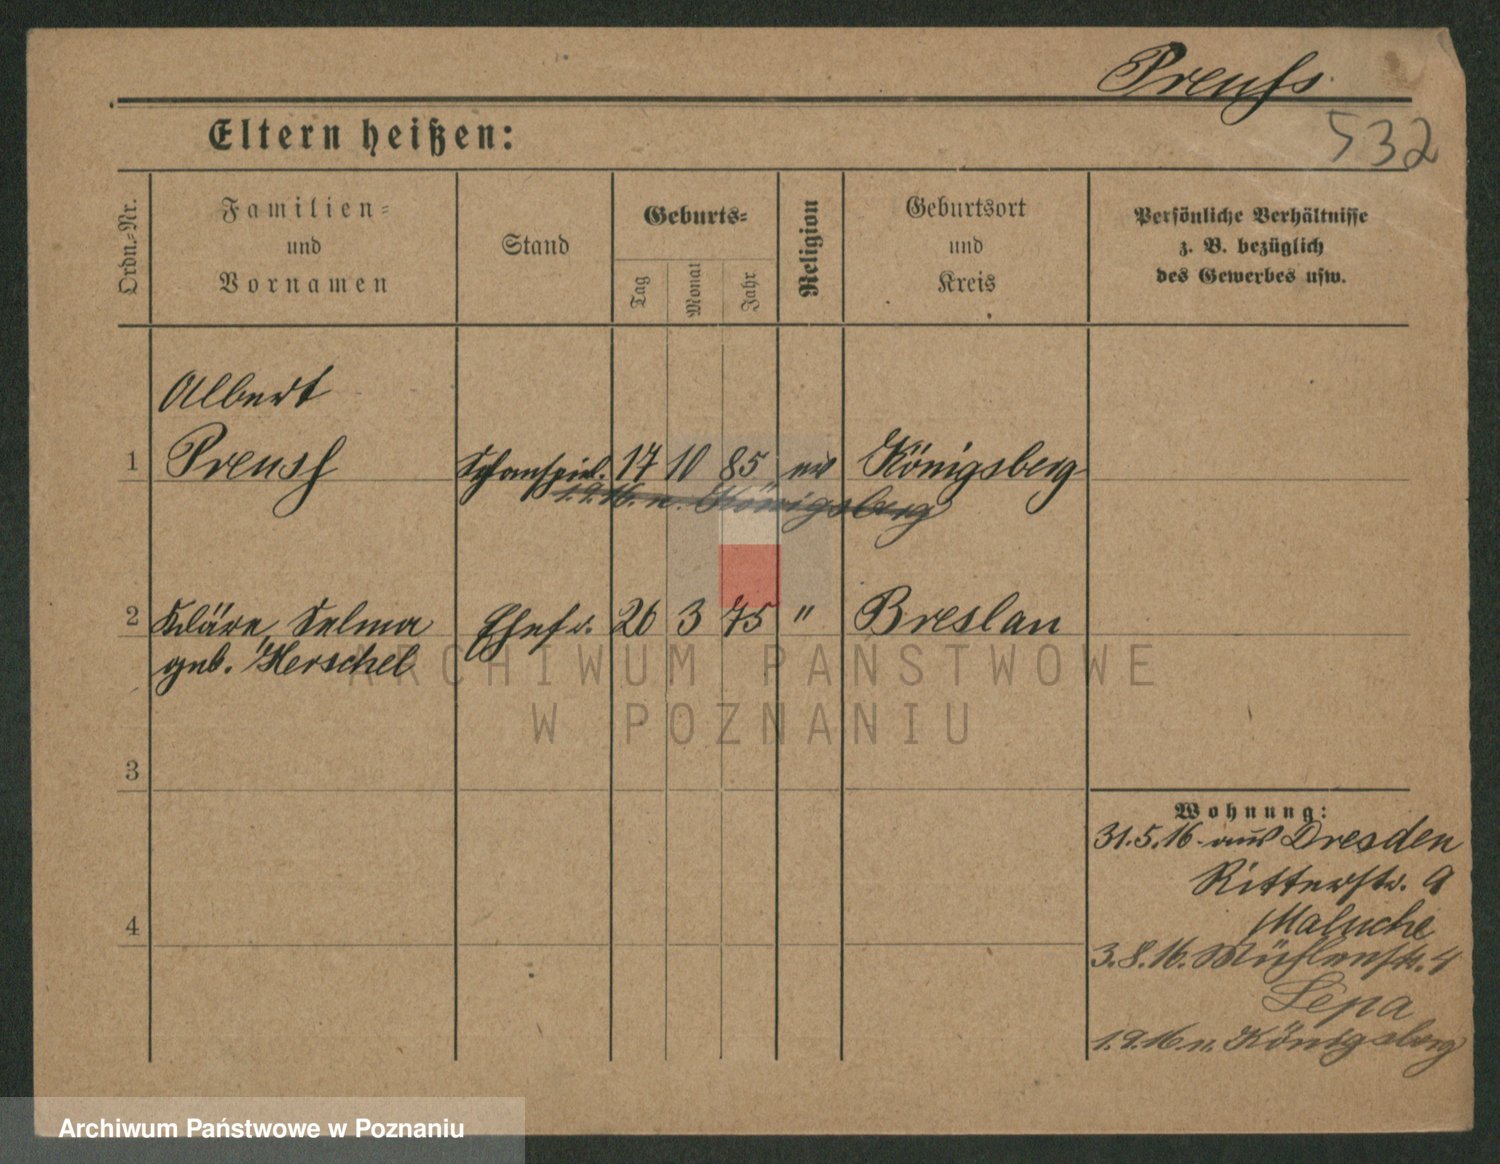 Preuß
532
Eltern heißen:
Ordn.-Nr.
Familien-
und
Vornamen
Stand
Geburts-
Tag
Monat
Jahr
Religion
Geburtsort
und
Kreis
Persönliche Verhältnisse
z. B. bezüglich
des Gewerbes usw.
Albert
1 Preuß Schauspiel. 17 10 85 ev Königsberg
1.9.16. n. Königsberg
2 Kläre, Selma Ehefr. 26 3 75 " Breslau
geb. Herschel
3
Wohnung:
31.5.16. aus Dresden
Ritterstr. 9
4 Maluche
3.8.16. Mühlenstr. 4
Lepa
1.9.16 n. Königsberg
ARCHIWUM PAŃSTWOWE
W POZNANIU
Archiwum Państwowe w Poznaniu